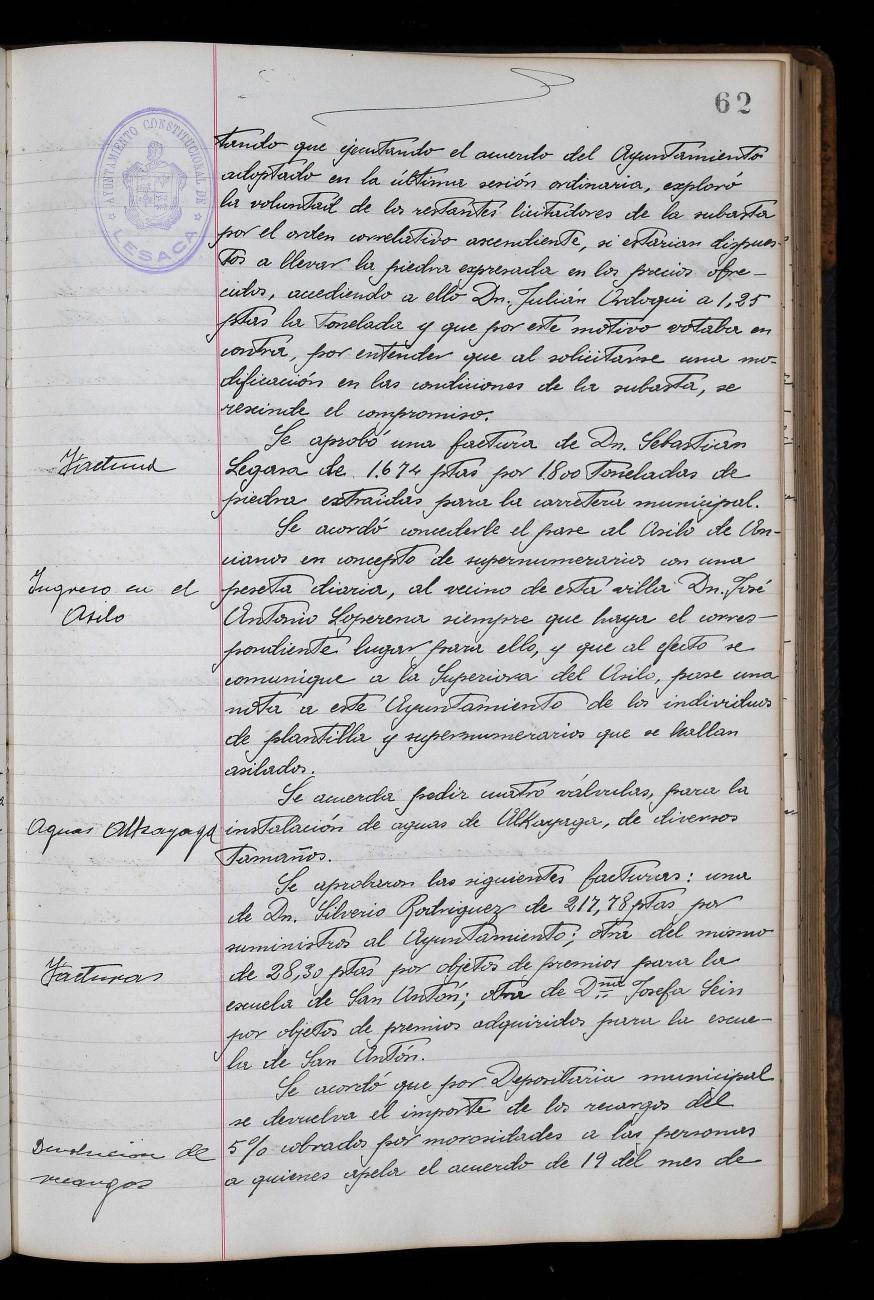 62
AYUNTAMIENTO CONSTITUCIONAL DE
LESACA
tando que ejecutando el acuerdo del Ayuntamiento
adoptado en la última sesión ordinaria, exploró
la voluntad de los restantes licitadores de la subasta
por el orden correlativo ascendiente, si estarian dispues-
tos a llevar la piedra expresada en los precios ofre-
cidos, accediendo a ello Dn. Julián Ordoqui a 1,25
ptas la tonelada y que por este motivo votaba en
contra, por entender que al solicitarse una mo-
dificación en las condiciones de la subasta, se
rescinde el compromiso.
Factura
Se aprobó una factura de Dn. Sebastian
Legasa de 1.674 ptas por 1.800 toneladas de
piedra extraidas para la carretera municipal.
Ingreso en el
Asilo
Se acordó concederle el pase al Asilo de An-
cianos en concepto de supernumerarios con una
peseta diaria, al vecino de esta villa Dn. José
Antonio Loperena siempre que haya el corres-
pondiente lugar para ello, y que al efecto se
comunique a la Superiora del Asilo, pase una
nota a este Ayuntamiento de los individuos
de plantilla y supernumerarios que se hallan
asilados.
Aguas Alkayaga
Se acuerda pedir cuatro válvulas, para la
instalación de aguas de Alkayaga, de diversos
tamaños.
Facturas
Se aprobaron las siguientes facturas: una
de Dn. Silverio Rodriguez de 217,78 ptas por
suministros al Ayuntamiento; otra del mismo
de 28,30 ptas por objetos de premios para la
escuela de San Antón; otra de Dña Josefa Sein
por objetos de premios adquiridos para la escue-
la de San Antón.
Devolucion de
recargos
Se acordó que por Depositaria municipal
se devuelva el importe de los recargos del
5% cobrados por morosidades a las personas
a quienes apela el acuerdo de 19 del mes de